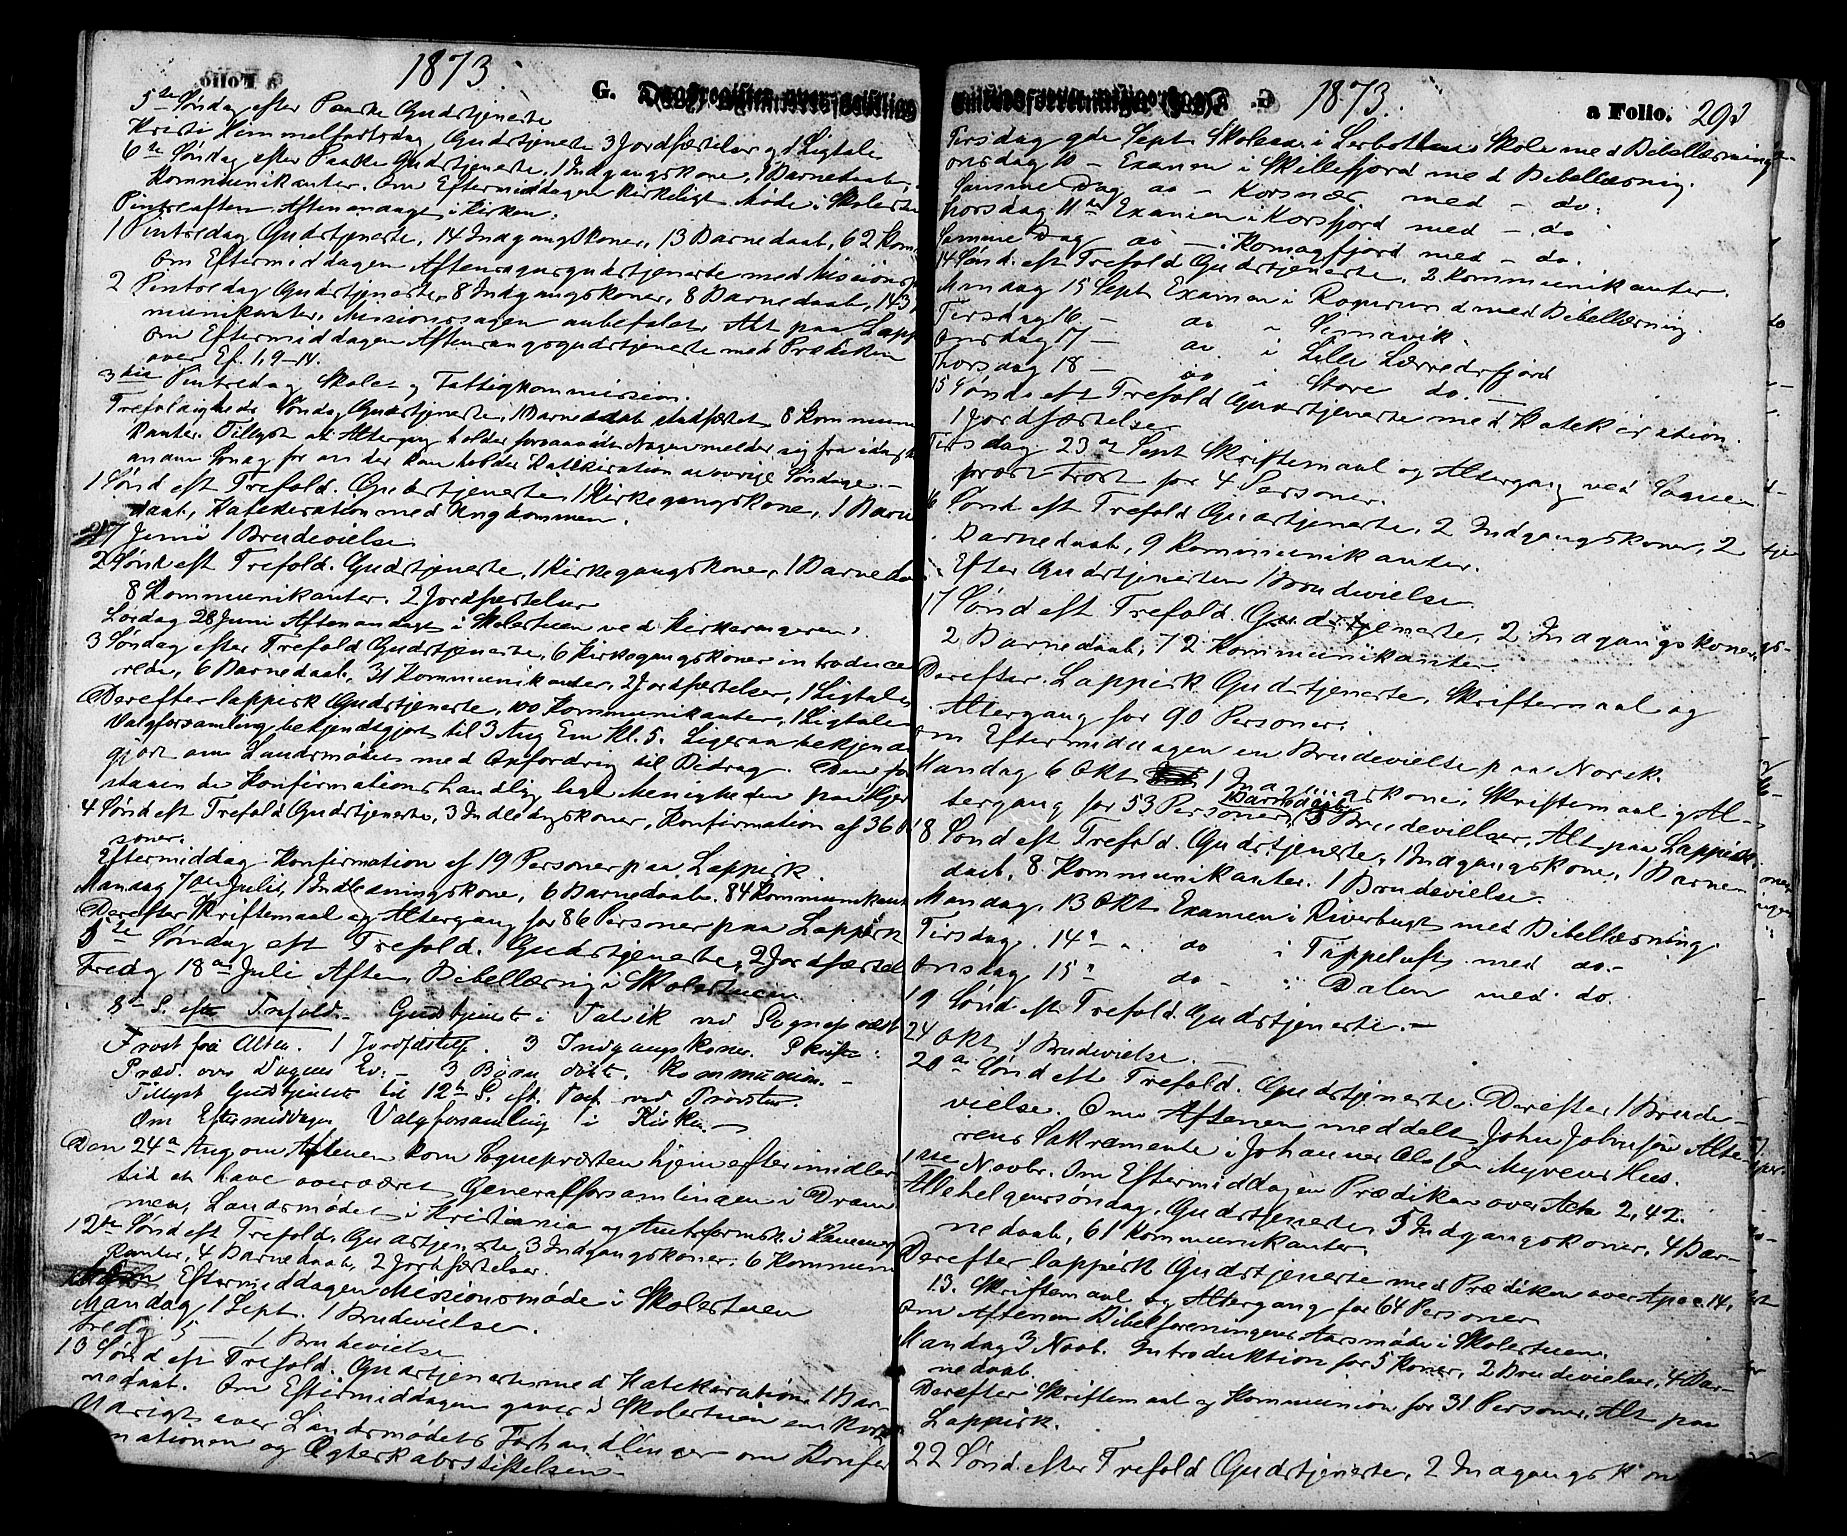 1873.
G.
5te Søndag efter Paaske Gudstjeneste
Kristi Himmelfartsdag Gudstjeneste 3 Jordfæstelser og 1 Ligtale
6te Søndag efter Paaske Gudstjeneste, 1 Indgangskone, 1 Barnedaab,
Kommunikanter. Om Eftermiddagen kirkeligt Møde i Skolestuen
Pintseaften Aftenandagt i Kirken.
1 Pintsedag Gudstjeneste, 14 Indgangskoner, 13 Barnedaab, 62 Kom
Om Eftermiddagen Aftensangsgudstjeneste med Missions
2 Pintsedag Gudstjeneste, 8 Indgangskoner, 8 Barnedaab, 143
munikanter, Missionssagen anbefalet. Alt paa Lapp
Om Eftermiddagen Aftensangsgudstjeneste med Prædiken
over Ef. 1, 9-14.
3die Pintsedag Skole og Fattigkommission.
Trefoldigheds Søndag Gudstjeneste, 1 Barnedaab stadfæstet, 8 Kommuni
kanter. Tillyst at Altergang holdes forsaavidt Nogen melder sig fra idag
anden Søndag for at der kan holdes Katekisation de øvrige Søndage. -
1 Sønd eft Trefold. Gudstjeneste, 1 Kirkegangskone, 1 Barne
daab, Katekisation med Ungdommen.
27 Juni 1 Brudevielse
2 Sønd eft Trefold. Gudstjeneste, 1 Kirkegangskone, 1 Barneda
8 Kommunikanter. 2 Jordfæstelser
Lørdag 28 Juni Aftenandagt i Skolestuen ved Kirkesangeren.
3 Søndag efter Trefold Gudstjeneste, 6 Kirkegangskoner introduce
rede, 6 Barnedaab, 31 Kommunikanter, 2 Jordfæstelser, 1 Ligtale
Derefter lappisk Gudstjeneste, 100 Kommunikanter, 1 Ligtale
Valgforsamling bekjendtgjort til 3 Aug Em Kl. 5. Ligesaa bekjendt
gjort om Landsmødet med Opfordring til Bidrag. Den fore
staaende Konfirmationshandling lagt Menigheden paa Hjer
4 Sønd eft Trefold Gudstjeneste, 3 Indledngskoner, Konfirmation af 36
soner.
Eftermiddag Konfirmation af 19 Personer paa Lappisk.
Mandag 7de Juli, 1 Indledningskone, 6 Barnedaab. 84 Kommunikant
Derefter Skriftemaal og Altergang for 86 Personer paa Lappisk
5te Søndag eft Trefold. Gudstjeneste, 2 Jordfæstel
Fredag 18de Juli Aften, Bibellæsning i Skolestuen
8de S. efter Trefold. Gudstjeneste i Talvik ved Sogneprest
Frost fra Alten. 1 Jordfæstelse. 3 Indgangskoner. Skrifte:
Præd. over Dagens Ev. - 3 Børn døbt. Kommunion. -
Tillyst Gudstjeneste til 12te S. eft. Tref. ved Provsten.
Om Eftermiddagen Valgforsamling i Kirken
Den 24de Aug om Aftenen kom Sognepresten hjem efter imidler
tid at have overværet Generalforsamlingen i Dram
men, Landsmødet i Kristiania og
12te Sønd eft Trefold. Gudstjeneste, 3 Indgangskoner. 6 Kommuni
kanter, 4 Barnedaab, 2 Jordfæstelser.
Eftermiddagen Missionsmøde i Skolestuen
Mandag 1 Sept. 1 Brudevielse.
Fredag 5 - 1 Brudevielse
13 Sønd eft Trefold. Gudstjeneste med Katekisation 1 Bar-
nedaab. Om Eftermiddagen gaves i Skolestuen en kort
Udsigt over Landsmødets Forhandlinger om Konfir
mationen og Ægteskabsstiftelsen -
1873.
a Folio. 293
Tirsdag 9de Sept Skoleex i Lerbottens Skole med Bibellæsning
Onsdag 10 - Examen i Skillefjord med Bibellæsning.
Samme Dag do - Korsnes med - do.
Thorsdag 11te Examen i Korsfjord med - do
Samme Dag do - i Komagfjord med - do.
14 Sønd. eft Trefold Gudstjeneste, 2 Kommunikanter.
Mandag 15 Sept Examen i Rognsund med Bibellæsning
Tirsdag 16 - do " Simavik.
Onsdag 17 - do i Lille Lærredsfjord
Thorsdag 18 - do i Store do. -
15 Sønd eft Trefold Gudstjeneste med Katekisation.
1 Jordfæstelse
Tirsdag 23de Sept Skriftemaal og Altergang ved Sogne-
prest Frost for 4 Personer.
16 Sønd eft Trefold Gudstjeneste, 2 Indgangskoner, 2
Barnedaab, 9 Kommunikanter.
Efter Gudstjenesten 1 Brudevielse
17 Sønd eft Trefold. Gudstjeneste, 2 Indgangskoner,
2 Barnedaab, 72 Kommunikanter
Derefter Lappisk Gudstjeneste, Skriftemaal og
Altergang for 90 Personer.
Om Eftermiddagen en Brudevielse paa Norsk.
Mandag 6 Okt 1 Indgangskone, Skriftemaal og Al-
tergang for 53 Personer, Barnedaab, 3 Brudevielser, Alt paa Lappisk.
18 Sønd eft Trefold. Gudstjeneste, 1 Indgangskone, 1 Barne-
daab, 8 Kommunikanter. 1 Brudevielse.
Mandag, 13 Okt Examen i Riverbugt med Bibellæsning.
Tirsdag. 14 " do i Tappeluft med do. -
Onsdag 15 " do - i Dalen med do.
19 Sønd eft Trefold Gudstjeneste. -
24 Okt 1 Brudevielse. -
20de Sønd eft Trefold. Gudstjeneste. Derefter 1 Brude-
vielse. Om Aftenen meddelt John Johnsøn Alte-
rens Sakramente i Johannes Olsen Myrens Hus.
1ste Novbr. Om Eftermiddagen Prædiken over Acta 2, 42.
Allehelgenssøndag, Gudstjeneste, 5 Indgangskoner, 4 Bar-
nedaab, 61 Kommunikanter
Derefter lappisk Gudstjeneste med Prædiken over Apoc. 14,
13. Skriftemaal og Altergang for 64 Personer
Om Aftenen Bibelforeningens Aarsmøde i Skolestuen.
Mandag 3 Novb. Introduktion for 5 Koner, 2 Brudevielser, 4 Bar-
nedaab.
Derefter Skriftemaal og Kommunion for 31 Personer, Alt paa
Lappisk.
22 Sønd. efter Trefold Gudstjeneste, 2 Indgangskon